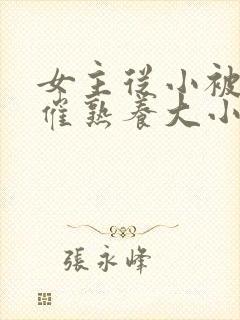 女主從小被
催熟養大小
張永峰